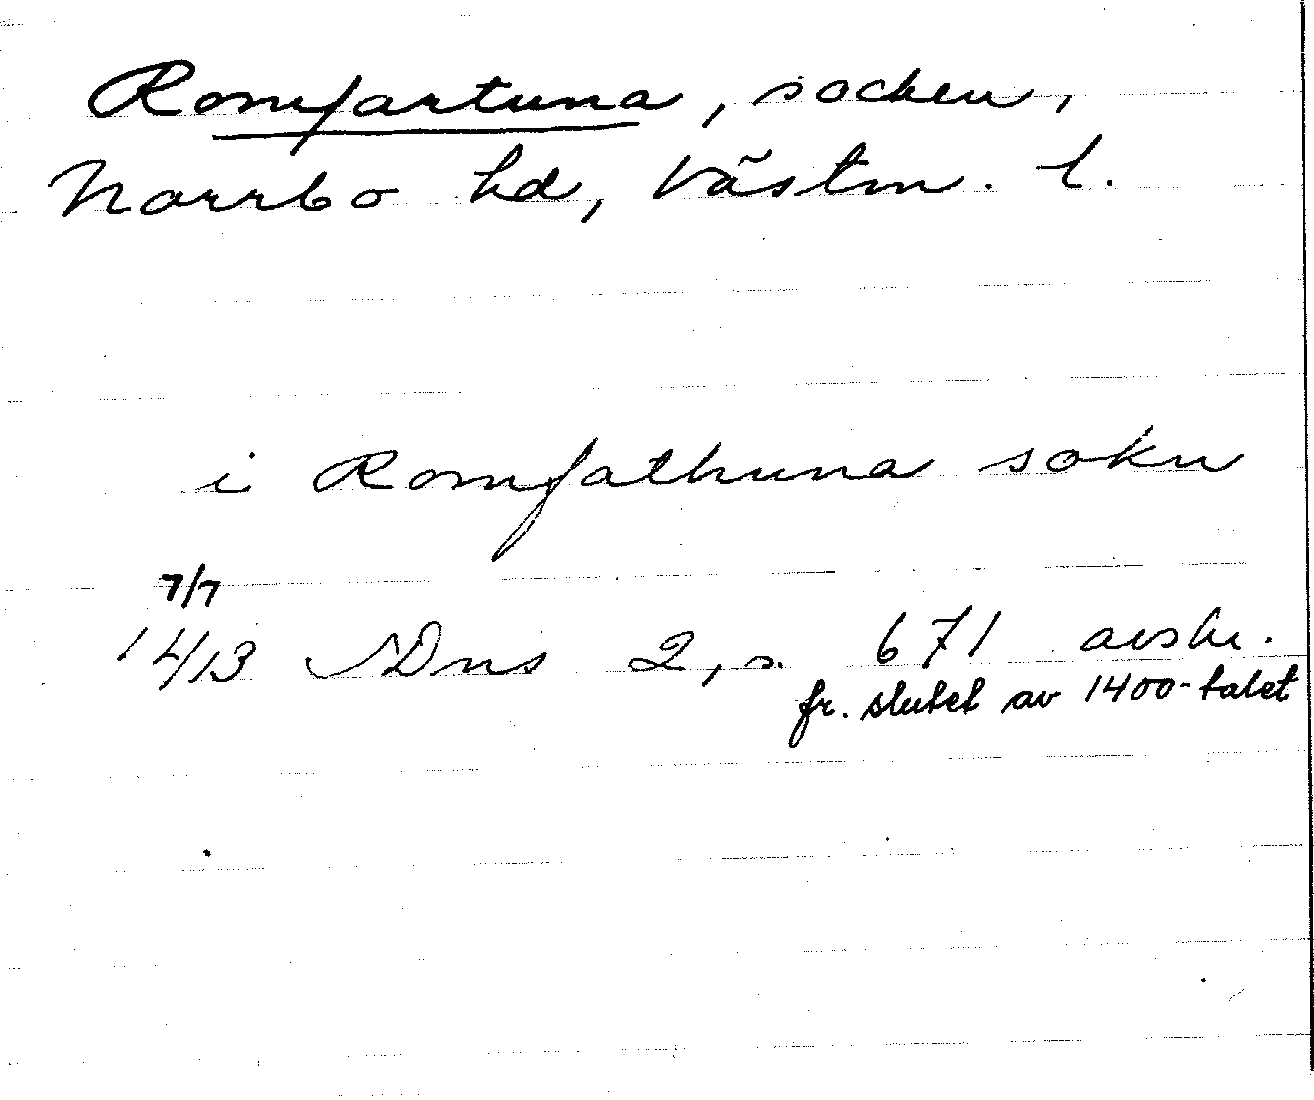 Romfartuna, socken,
Norrbo hd, Västm. l.
i Romfathuna sokn
7/7
1413 SDns 2, s. 671 avskr.
fr. slutet av 1400-talet